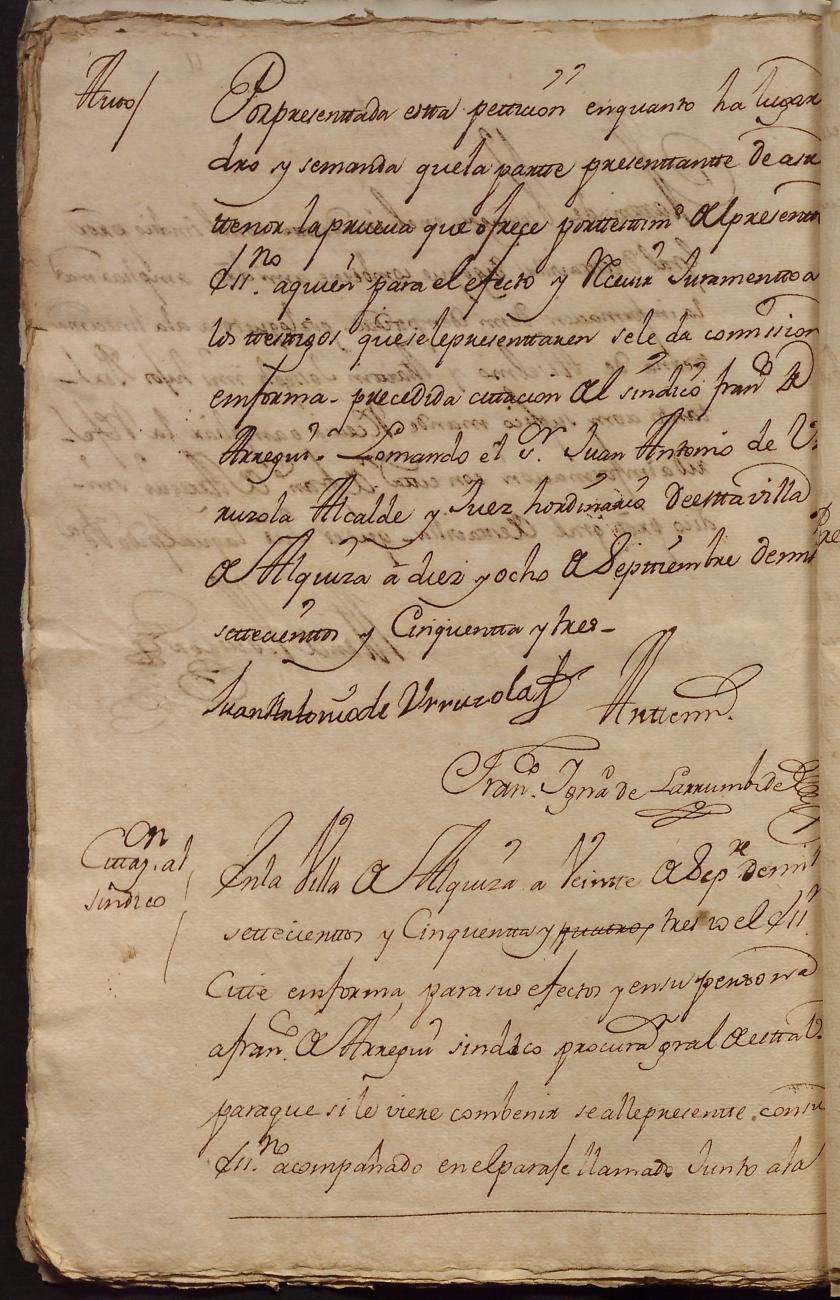 Autto/
Por presenttada estta pettición enquanto ha lugar
dro y semanda quela partte presenttantte de asu
ttenor laprueva que ofreçe porttesttimo. del presentte
ess.no aquien para el efecto y Recevir Juramentto a
los ttesttigos queselepresenttaren sele da comission
emforma precedida cittacion del síndico fran.co de
Arregui. Lomando el S.r Juan Antonio de V-
rruzola Alcalde y Juez hordinario deesttavilla
de Alquiza á diez yocho de Septtiembre demil
settecienttos y Cinquentta y tres-
Juan Antonio de Vrruzola
Anttemi.
Fran.co Igna.o de Larrumbide
Cittaz.on al
síndico
Enla Villa de Alquiza a Veintte de Sep.re demil
settecienttos y Cinquentta y quatro, tres yo el ess.no
Citté emforma, parasus efectos y ensu persona
afran.co de Arregui sindico procurad.r gral deestta V.a
paraque si le viere combenir sealle presentte consu
ess.no acompañado enel paraje llamado Junto ala